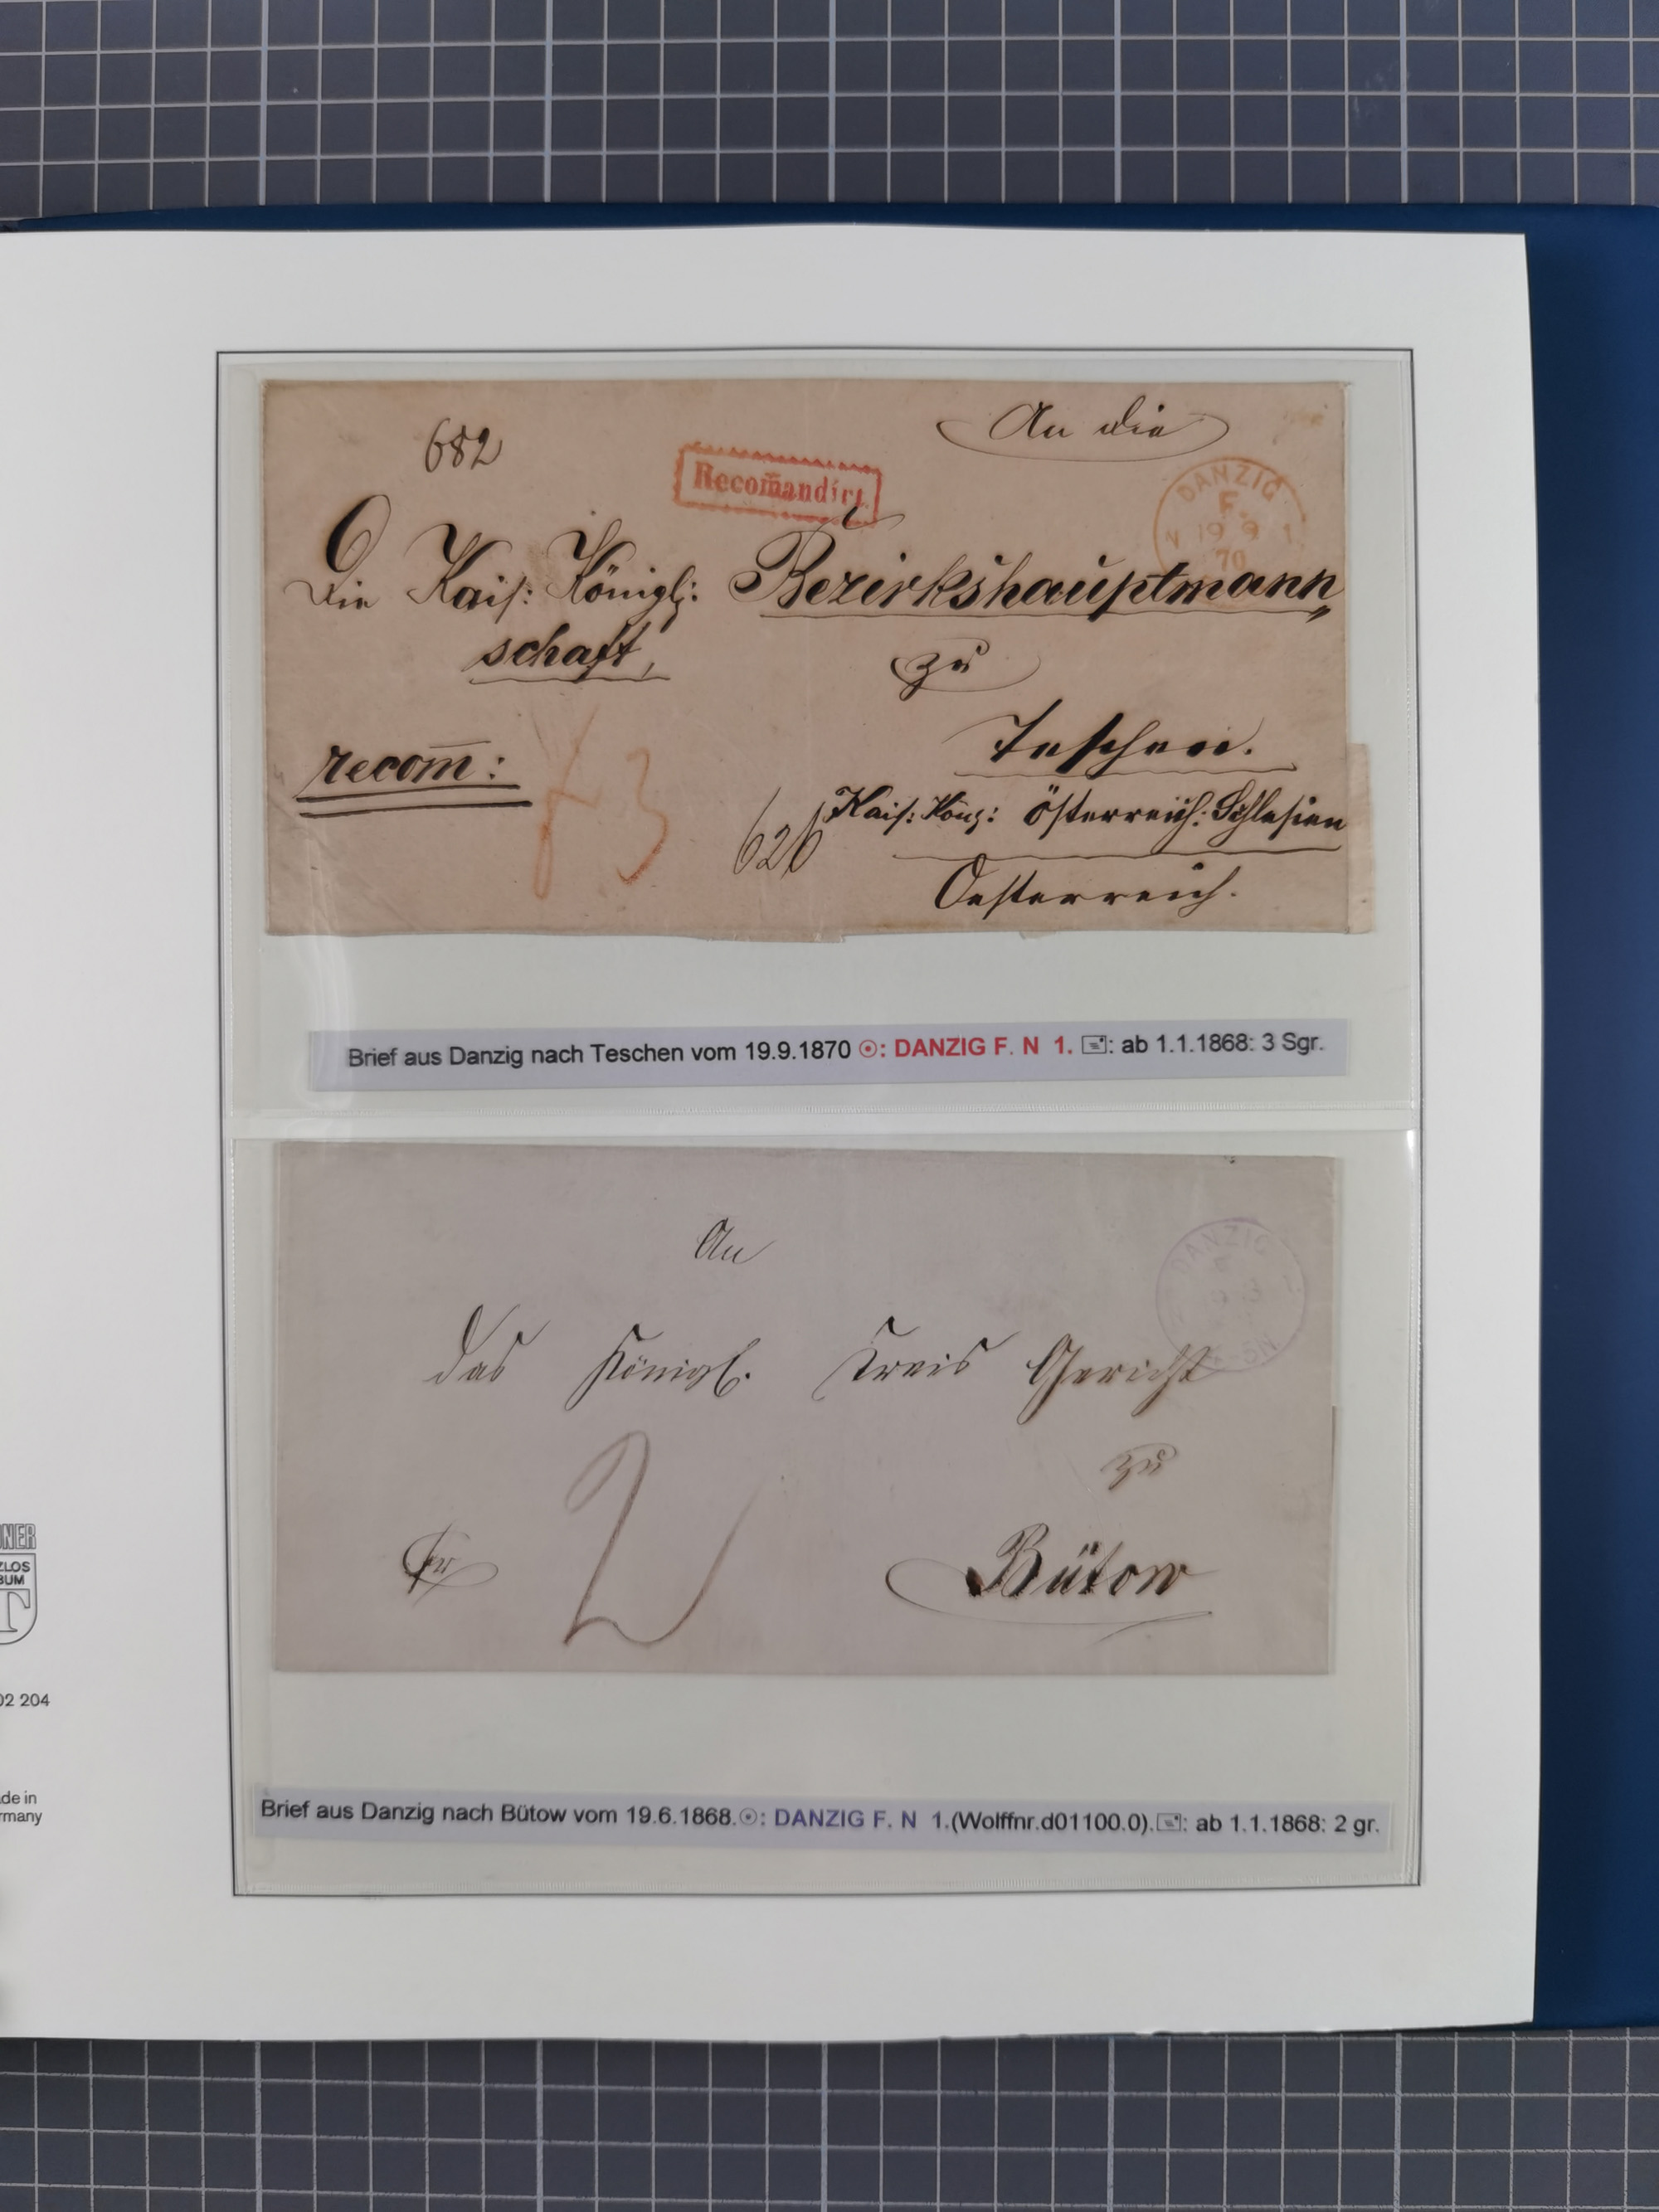 682
An die
Recom̅andirt
DANZIG
F.
N 19 9 1
70
Die Kais: Königl: Bezirkshauptmann„
schaft,
zu
recom̅:
Teschen.
3
626
Kais: Kön̅g: Österreich: Schlesien
Oesterreich.
Brief aus Danzig nach Teschen vom 19.9.1870 ☉: DANZIG F. N 1. 🖃: ab 1.1.1868: 3 Sgr.
An
DANZIG
das Königl. Kreis Gericht
zu
2
Bütow
Brief aus Danzig nach Bütow vom 19.6.1868.☉: DANZIG F. N 1.(Wolffnr.d01100.0).🖃: ab 1.1.1868: 2 gr.
NER
ZLOS
BUM
T
02 204
de in
rmany